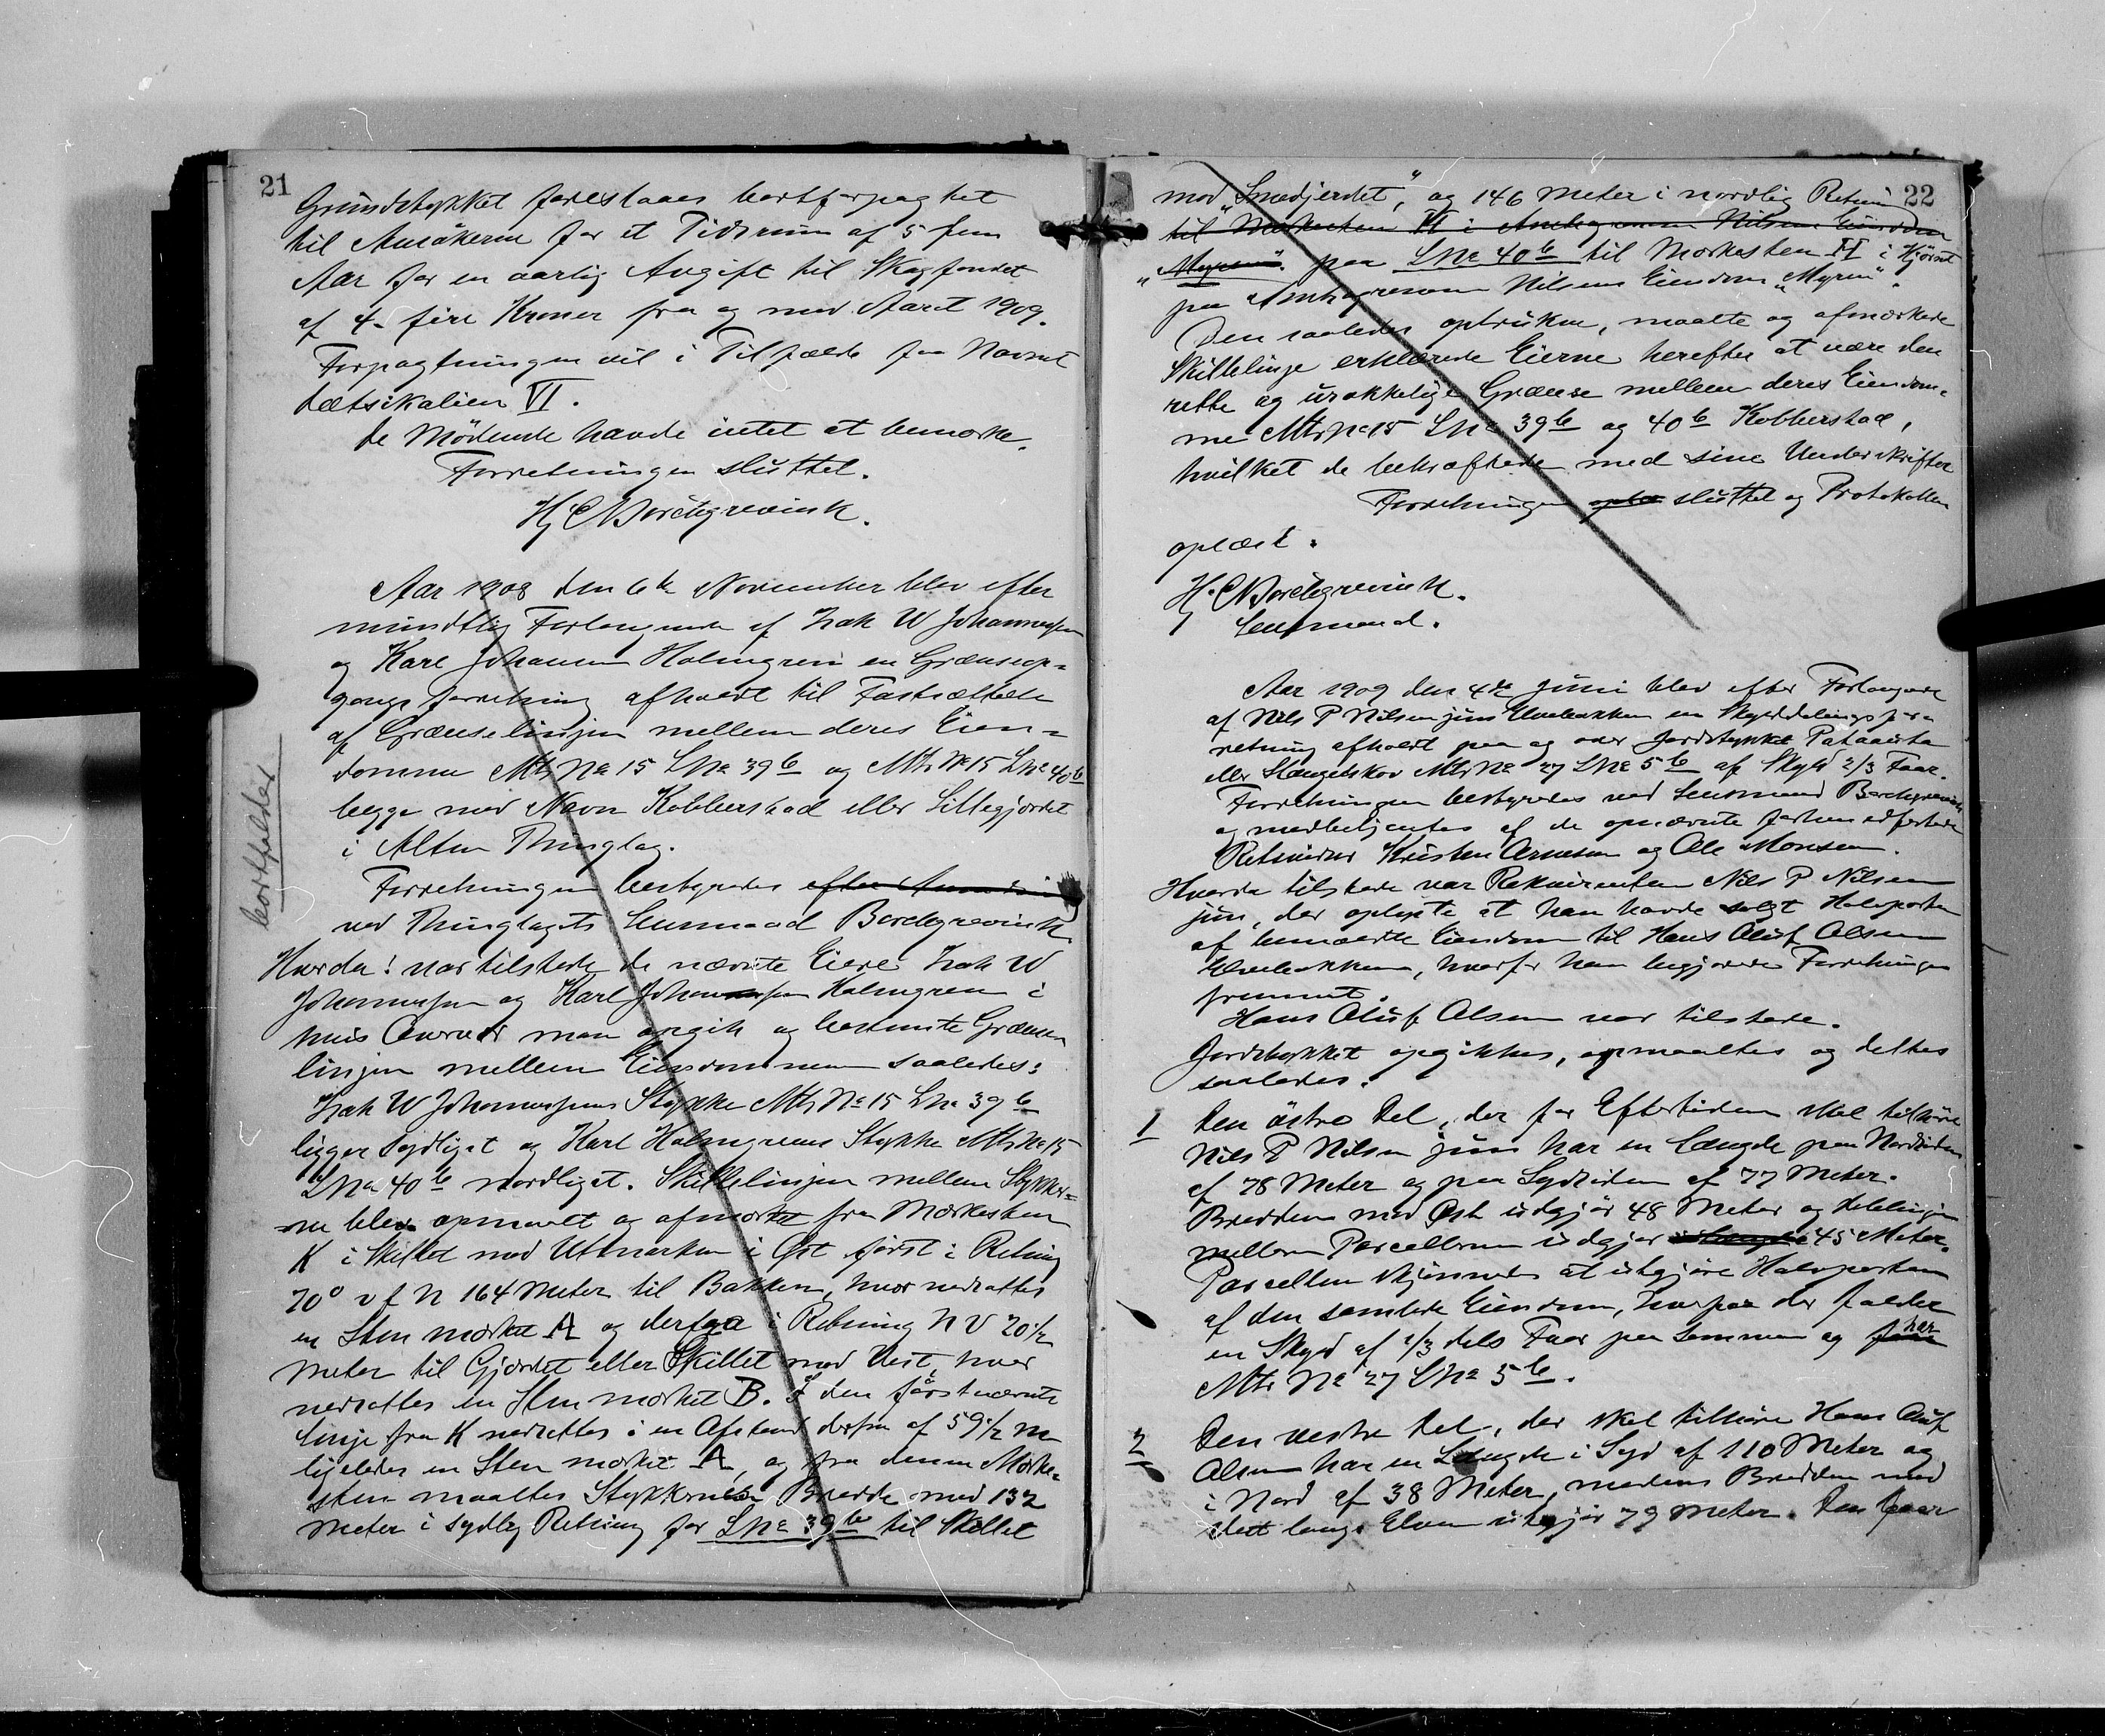 21
Grundstykket foreslaaes bortforpagtet
til Ansøkerne for et Tidsrum af 5 fem
Aar for en aarlig Avgift til Skogfondet
af 4- fire Kroner fra og med Aaret 1909.
Forpagtningen vil i Tilfælde faa Navnet
VI.
De Mødende havde intet at bemærke.
Forretningen sluttet.
Hj C Borchgrevink.
Aar 1908 den 6te November blev efter
mundtlig Forlangende af Isak W Johannessen
og Karl Johansen Holmgren en Grænseop-
gangsforretning afholdt til Fastsættelse
af Grænselinjen mellem deres Eien-
domme Mtr No 15 LNo 39b og Mtr No 15 LNo 40b
begge med Navn Kobberstad eller Lillegjærdet
i Alten Thinglag.
bortfalder
Forretningen bestyredes efter
ved Thinglagets Lensmand Borchgrevink
Hvorda! var tilstede de nævnte Eiere Isak W
Johannessen og Karl Johannessen Holmgren i
hvis Overvær man opgik og bestemte Grænse
linjen mellem Eiendommene saaledes:
Isak W Johannessens Stykke Mtr No 15 LNo 39b
ligger sydligst og Karl Holmgrens Stykke Mtr No 15
LNo 40b nordligst. Skillelinjen mellem Stykker-
ne blev opmaalt og afmærket fra Mærkesten
K i Skillet mod Utmarken i Øst først i Retning
70° v f N 164 Meter til Bakken, hvor nedsattes
en Sten mærket A og derfra i Retning N V 20 1/2
Meter til Gjærdet eller Skillet mod Vest, hvor
nedsattes en Sten mærket B. I den førstnævnte
Linje fra K nedsattes i en Afstand derfra af 59 1/2 m
ligeledes en Sten mærket A, og fra denne Mærke-
sten maaltes Stykkernes Bredde med 132
Meter i sydlig Retning for LNo 39b til Skillet
22
mod "Smedjerdet", og 146 Meter i nordlig Retning
til Mærkesten H i Nilsens Eiendom
"Myren". paa LNo 40b til Mærkesten H i Hjørnet
paa Nilsens Eiendom "Myren".
Den saaledes optrukne, maalte og afmærkede
Skillelinje erklærede Eierne herefter at være den
rette og urokkelige Grænse mellem deres Eiendom-
me Mtr No 15 LNo 39b og 40b Kobberstad,
hvilket de bekræftede med sine Underskrifter
Forretningen sluttet og Protokollen
oplæst.
Hj. C Borchgrevink.
Lensmand.
Aar 1909 den 4de Juni blev efter Forlangende
af Nils P Nilsen jun Elvebakken en Skylddelingsfor-
retning afholdt paa og over Jordstykket
eller Slengelskov Mtr No 27 LNo 5b af Skyld 2/3 Faar.
Forretningen bestyredes ved Lensmand Borchgrevink
og medbetjentes af de opnævnte forhen edfæstede
Retsvidner Kristen Arnesen og Ole Monsen.
Hvorda tilstede var Rekvirenten Nils P Nilsen
jun, der oplyste at han havde solgt Halvparten
af bemældte Eiendom til Hans Oluf Olsen
Elvebakken, hvorfor han begjærede Forretningen
fremmet.
Hans Oluf Olsen var tilstede.
Jordstykket opgikkes, opmaaltes og deltes
saaledes:
1 Den østre Del, der for Eftertiden skal tilhøre
Nils P Nilsen jun har en Længde paa Nordsiden
af 78 Meter og paa Sydsiden af 77 Meter.
Bredden mod Øst udgjør 48 Meter og Delelinjen
mellem Parcellerne udgjør i Længde 45 Meter.
Parcellen skjønnedes at udgjøre Halvparten
af den samlede Eiendom, hvorpaa der falder
en Skyld af 1/3 dels Faar paa samme og faar har
Mtr No 27 LNo 5b.
2 Den vestre Del, der skal tilhøre Hans Oluf
Olsen har en Længde i Syd af 110 Meter og
i Nord af 38 Meter, medens Bredden mod
Vest langs Elven udgjør 79 Meter. Den faar